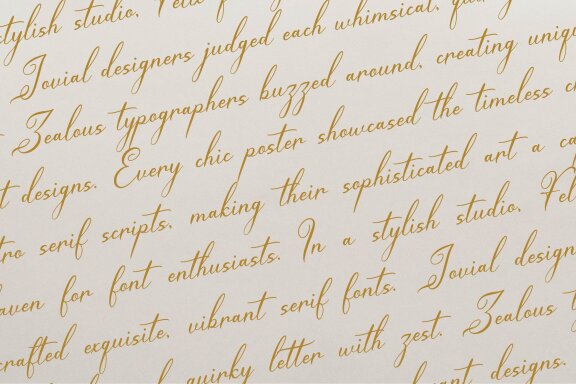 stylish studio, Felix
Jovial designers judged each whimsical,
Zealous typographers buzzed around, creating
designs. Every chic poster showcased the timeless
serif scripts, making their sophisticated art a
for font enthusiasts. In a stylish studio,
crafted exquisite, vibrant serif fonts. Jovial
quirky letter with zest. Zealous
designs.